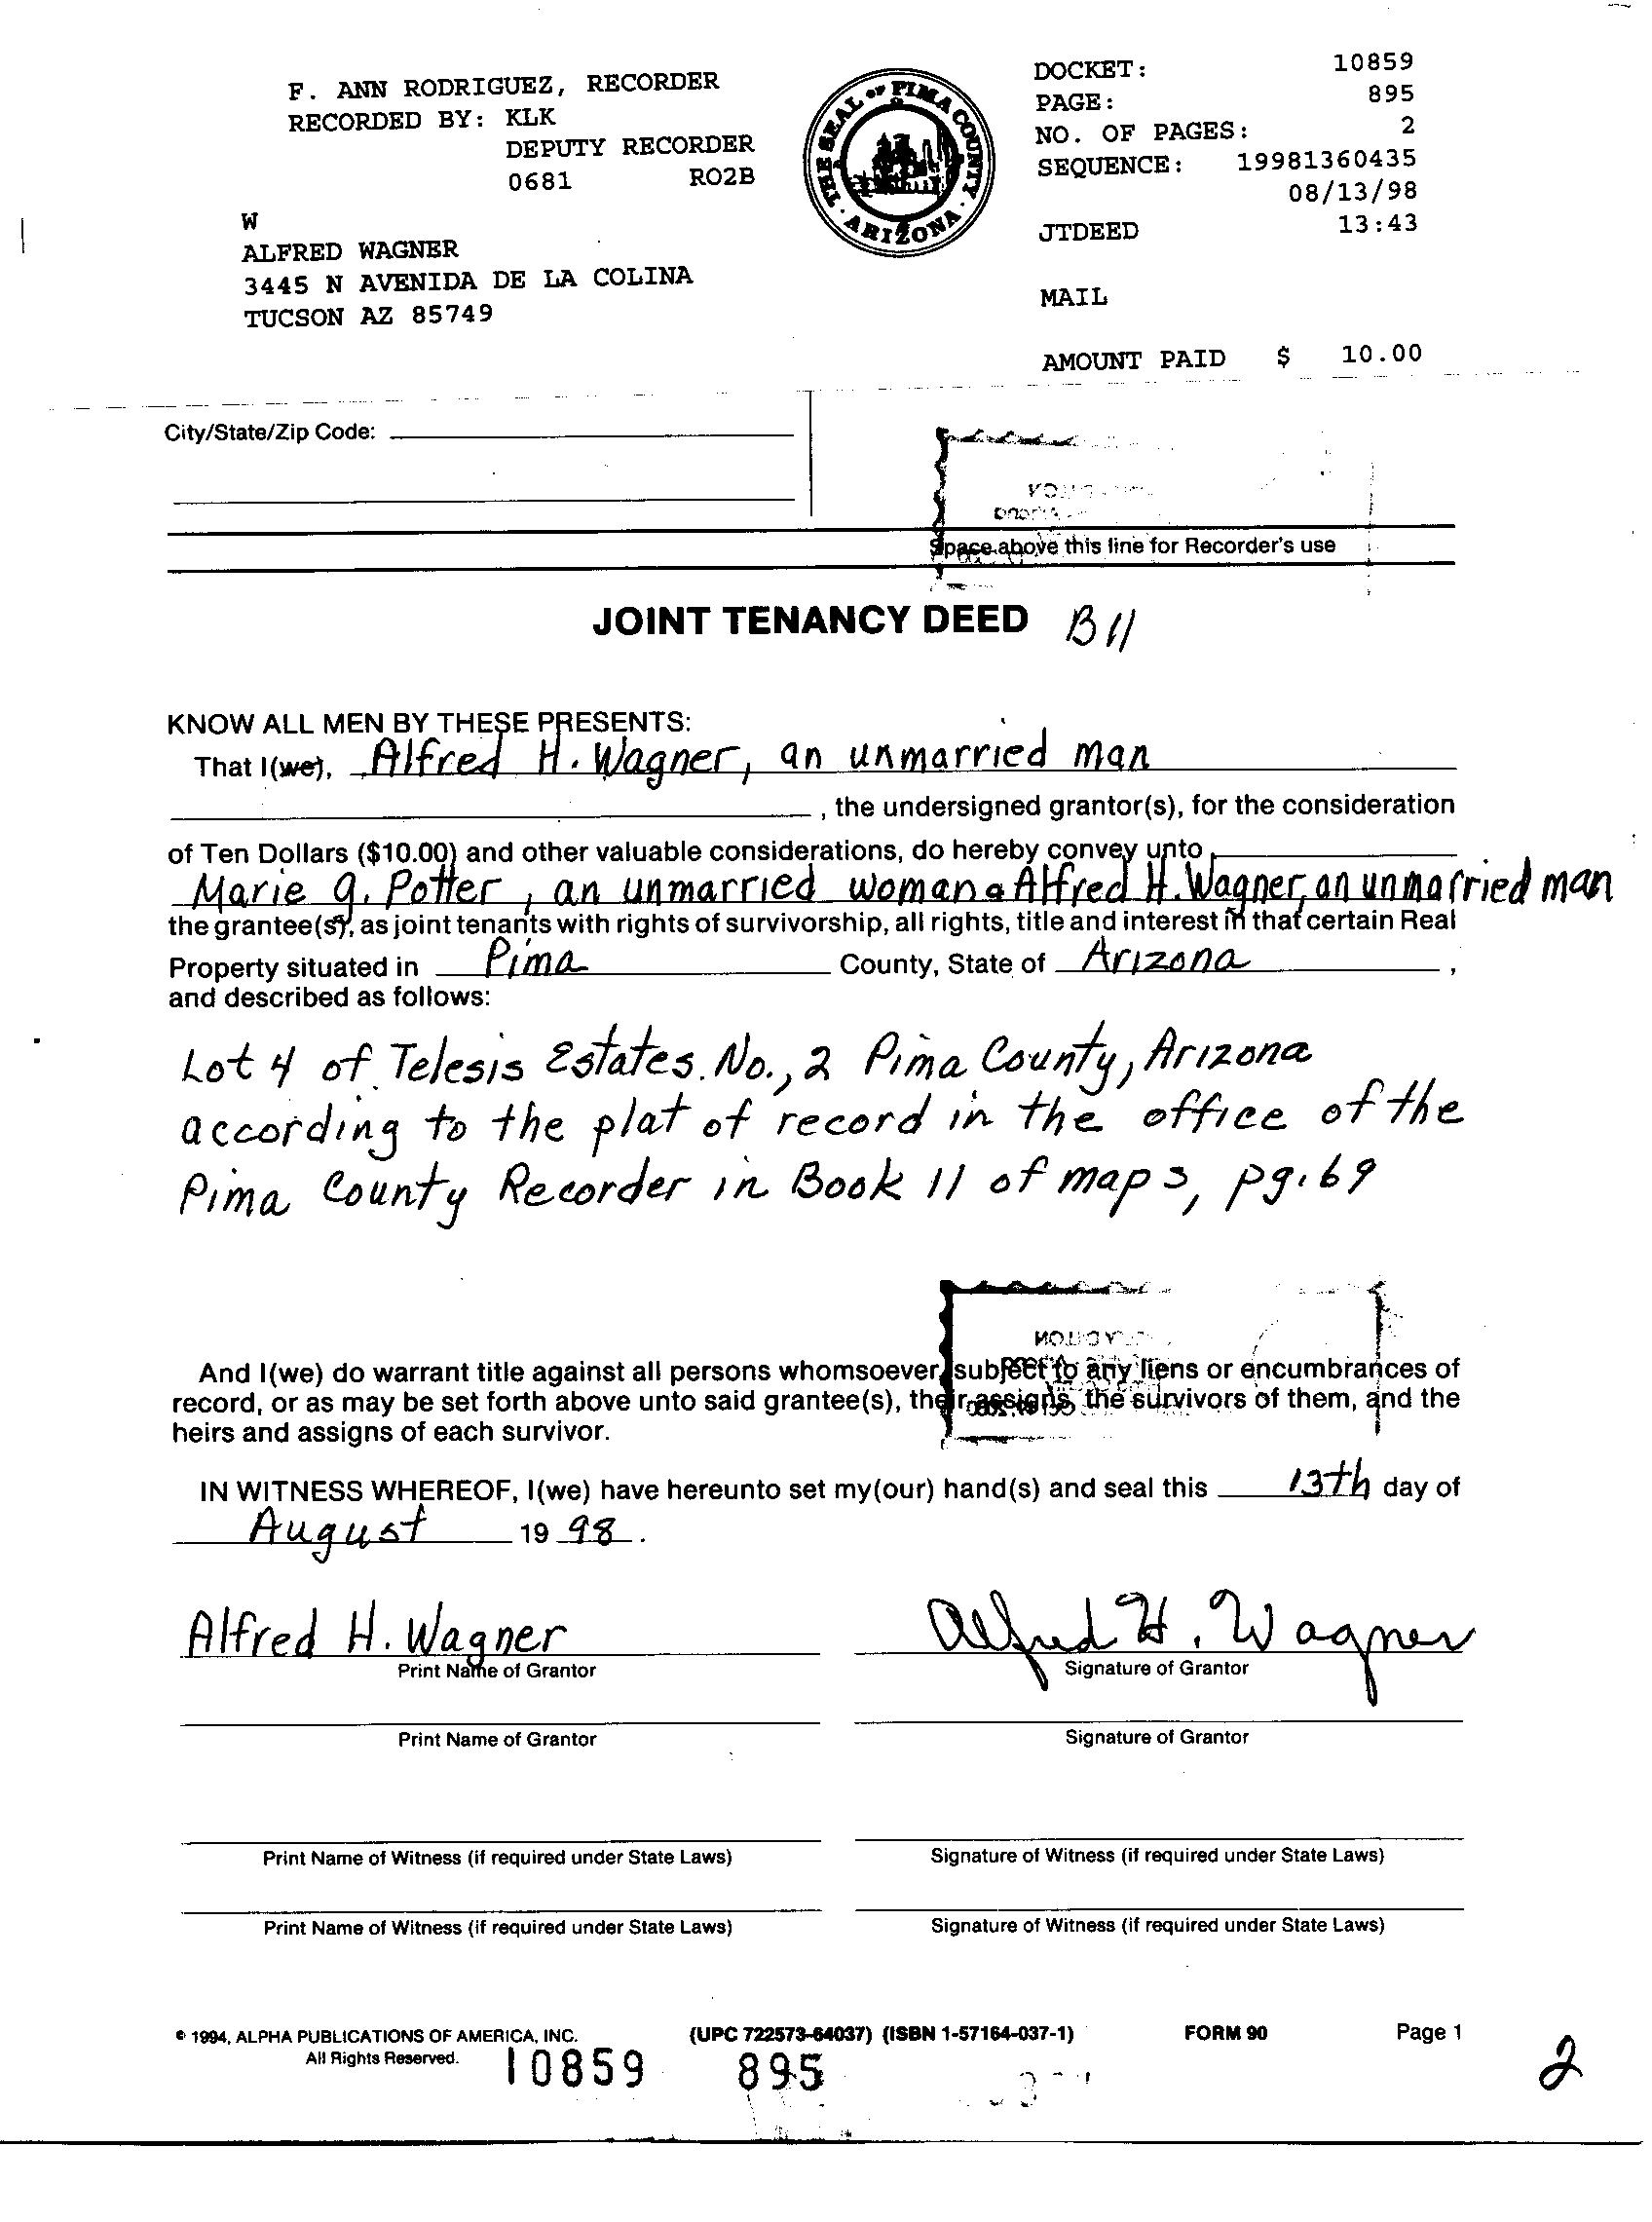 F. ANN RODRIGUEZ, RECORDER
RECORDED BY: KLK
DEPUTY RECORDER
0681 RO2B
W
ALFRED WAGNER
3445 N AVENIDA DE LA COLINA
TUCSON AZ 85749
THE SEAL OF PIMA COUNTY
ARIZONA
DOCKET: 10859
PAGE: 895
NO. OF PAGES: 2
SEQUENCE: 19981360435
08/13/98
JTDEED 13:43
MAIL
AMOUNT PAID $ 10.00
City/State/Zip Code:
Space above this line for Recorder's use
JOINT TENANCY DEED B11
KNOW ALL MEN BY THESE PRESENTS:
That I(we), Alfred H. Wagner, an unmarried man
, the undersigned grantor(s), for the consideration
of Ten Dollars ($10.00) and other valuable considerations, do hereby convey unto
Marie G. Potter, an unmarried woman & Alfred H. Wagner, an unmarried man
the grantee(s), as joint tenants with rights of survivorship, all rights, title and interest in that certain Real
Property situated in Pima County, State of Arizona,
and described as follows:
Lot 4 of Telesis Estates. No., 2 Pima County, Arizona
according to the plat of record in the office of the
Pima County Recorder in Book 11 of maps, pg. 69
And I(we) do warrant title against all persons whomsoever, subject to any liens or encumbrances of
record, or as may be set forth above unto said grantee(s), their assigns, the survivors of them, and the
heirs and assigns of each survivor.
IN WITNESS WHEREOF, I(we) have hereunto set my(our) hand(s) and seal this 13th day of
August 19 98.
Alfred H. Wagner Alfred H. Wagner
Print Name of Grantor Signature of Grantor
Print Name of Grantor Signature of Grantor
Print Name of Witness (if required under State Laws) Signature of Witness (if required under State Laws)
Print Name of Witness (if required under State Laws) Signature of Witness (if required under State Laws)
© 1994, ALPHA PUBLICATIONS OF AMERICA, INC. (UPC 722573-64037) (ISBN 1-57164-037-1) FORM 90 Page 1
All Rights Reserved.
10859 895 2